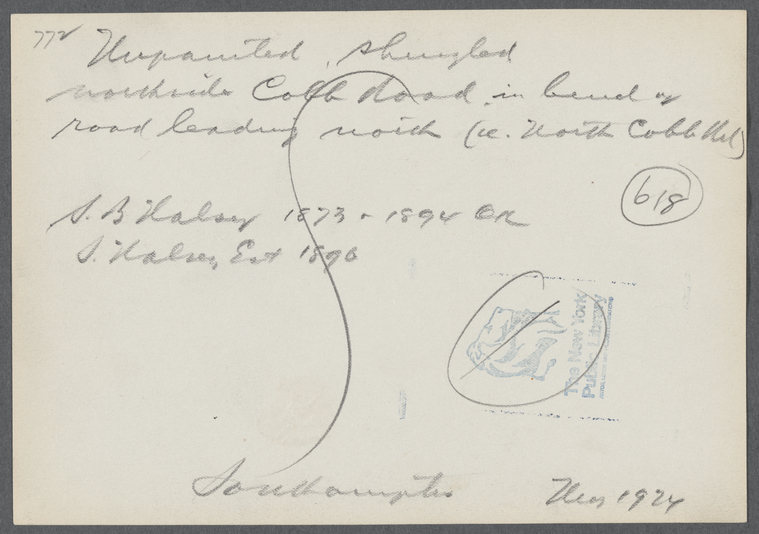 772
Unpainted, shingled
northside Cobb Road, in bend of
road leading north (ie. North Cobb Rd)
618
S. B Halsey 1873 - 1894 OK
S. Halsey Est 1896
The New York
Public Library
Southampton May 1924